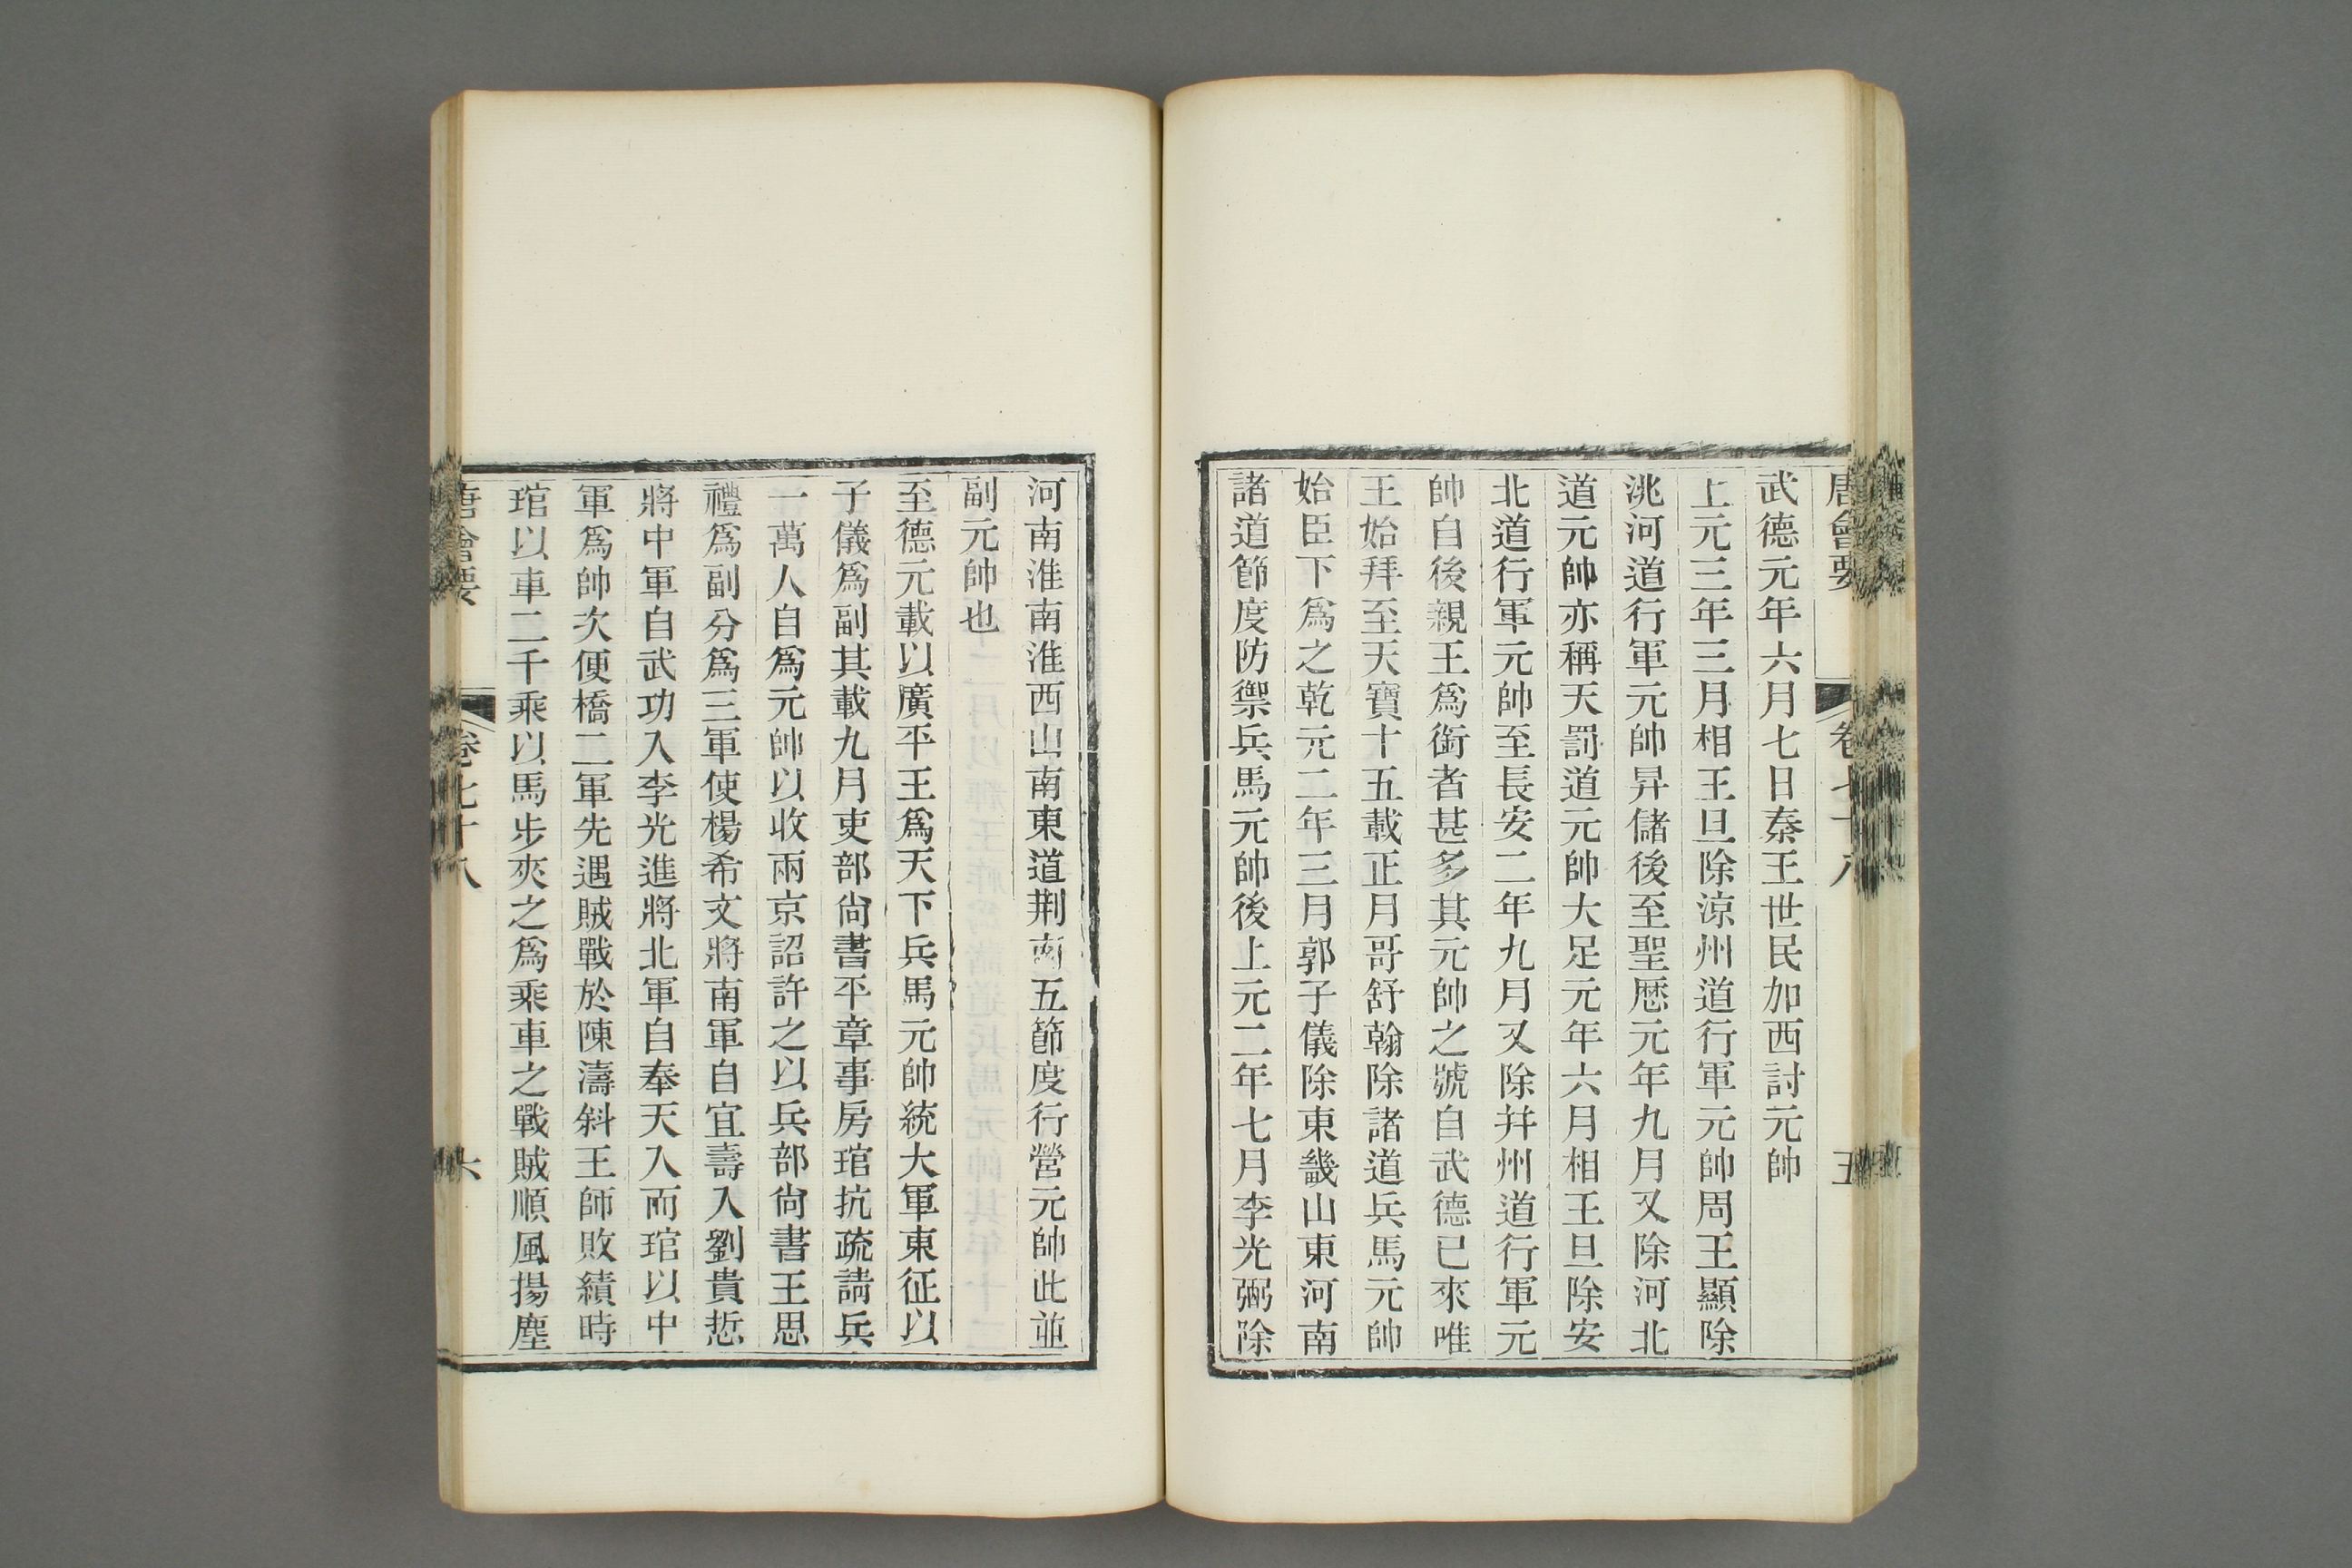 唐會要 卷七十八 五
武德元年六月七日秦王世民加西討元帥
上元三年三月相王旦除涼州道行軍元帥周王顯除
洮河道行軍元帥昇儲後至聖厯元年九月又除河北
道元帥亦稱天罰道元帥大足元年六月相王旦除安
北道行軍元帥至長安二年九月又除并州道行軍元
帥自後親王爲銜者甚多其元帥之號自武德已來唯
王始拜至天寶十五載正月哥舒翰除諸道兵馬元帥
始臣下爲之乾元二年三月郭子儀除東畿山東河南
諸道節度防禦兵馬元帥後上元二年七月李光弼除
河南淮南淮西山南東道荆南五節度行營元帥此並
副元帥也
至德元載以廣平王爲天下兵馬元帥統大軍東征以
子儀爲副其載九月吏部尙書平章事房琯抗疏請兵
一萬人自爲元帥以收兩京詔許之以兵部尙書王思
禮爲副分爲三軍使楊希文將南軍自宜壽入劉貴悊
將中軍自武功入李光進將北軍自奉天入而琯以中
軍爲帥次便橋二軍先遇賊戰於陳濤斜王師敗績時
琯以車二千乘以馬步夾之爲乘車之戰賊順風揚塵
唐會要 卷七十八 六